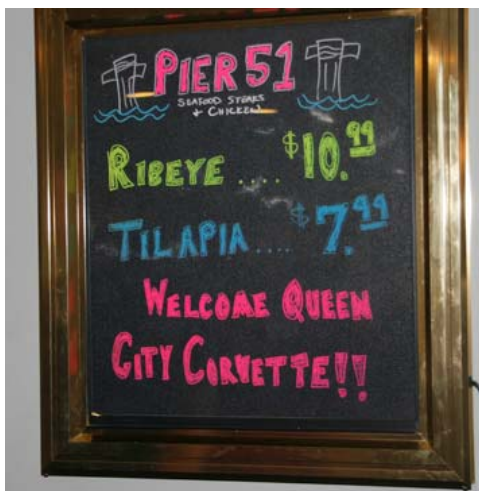 PIER 51
SEAFOOD STEAKS
+ CHICKEN
RIBEYE .... $10.99
TILAPIA .... $7.99
WELCOME QUEEN
CITY CORVETTE!!